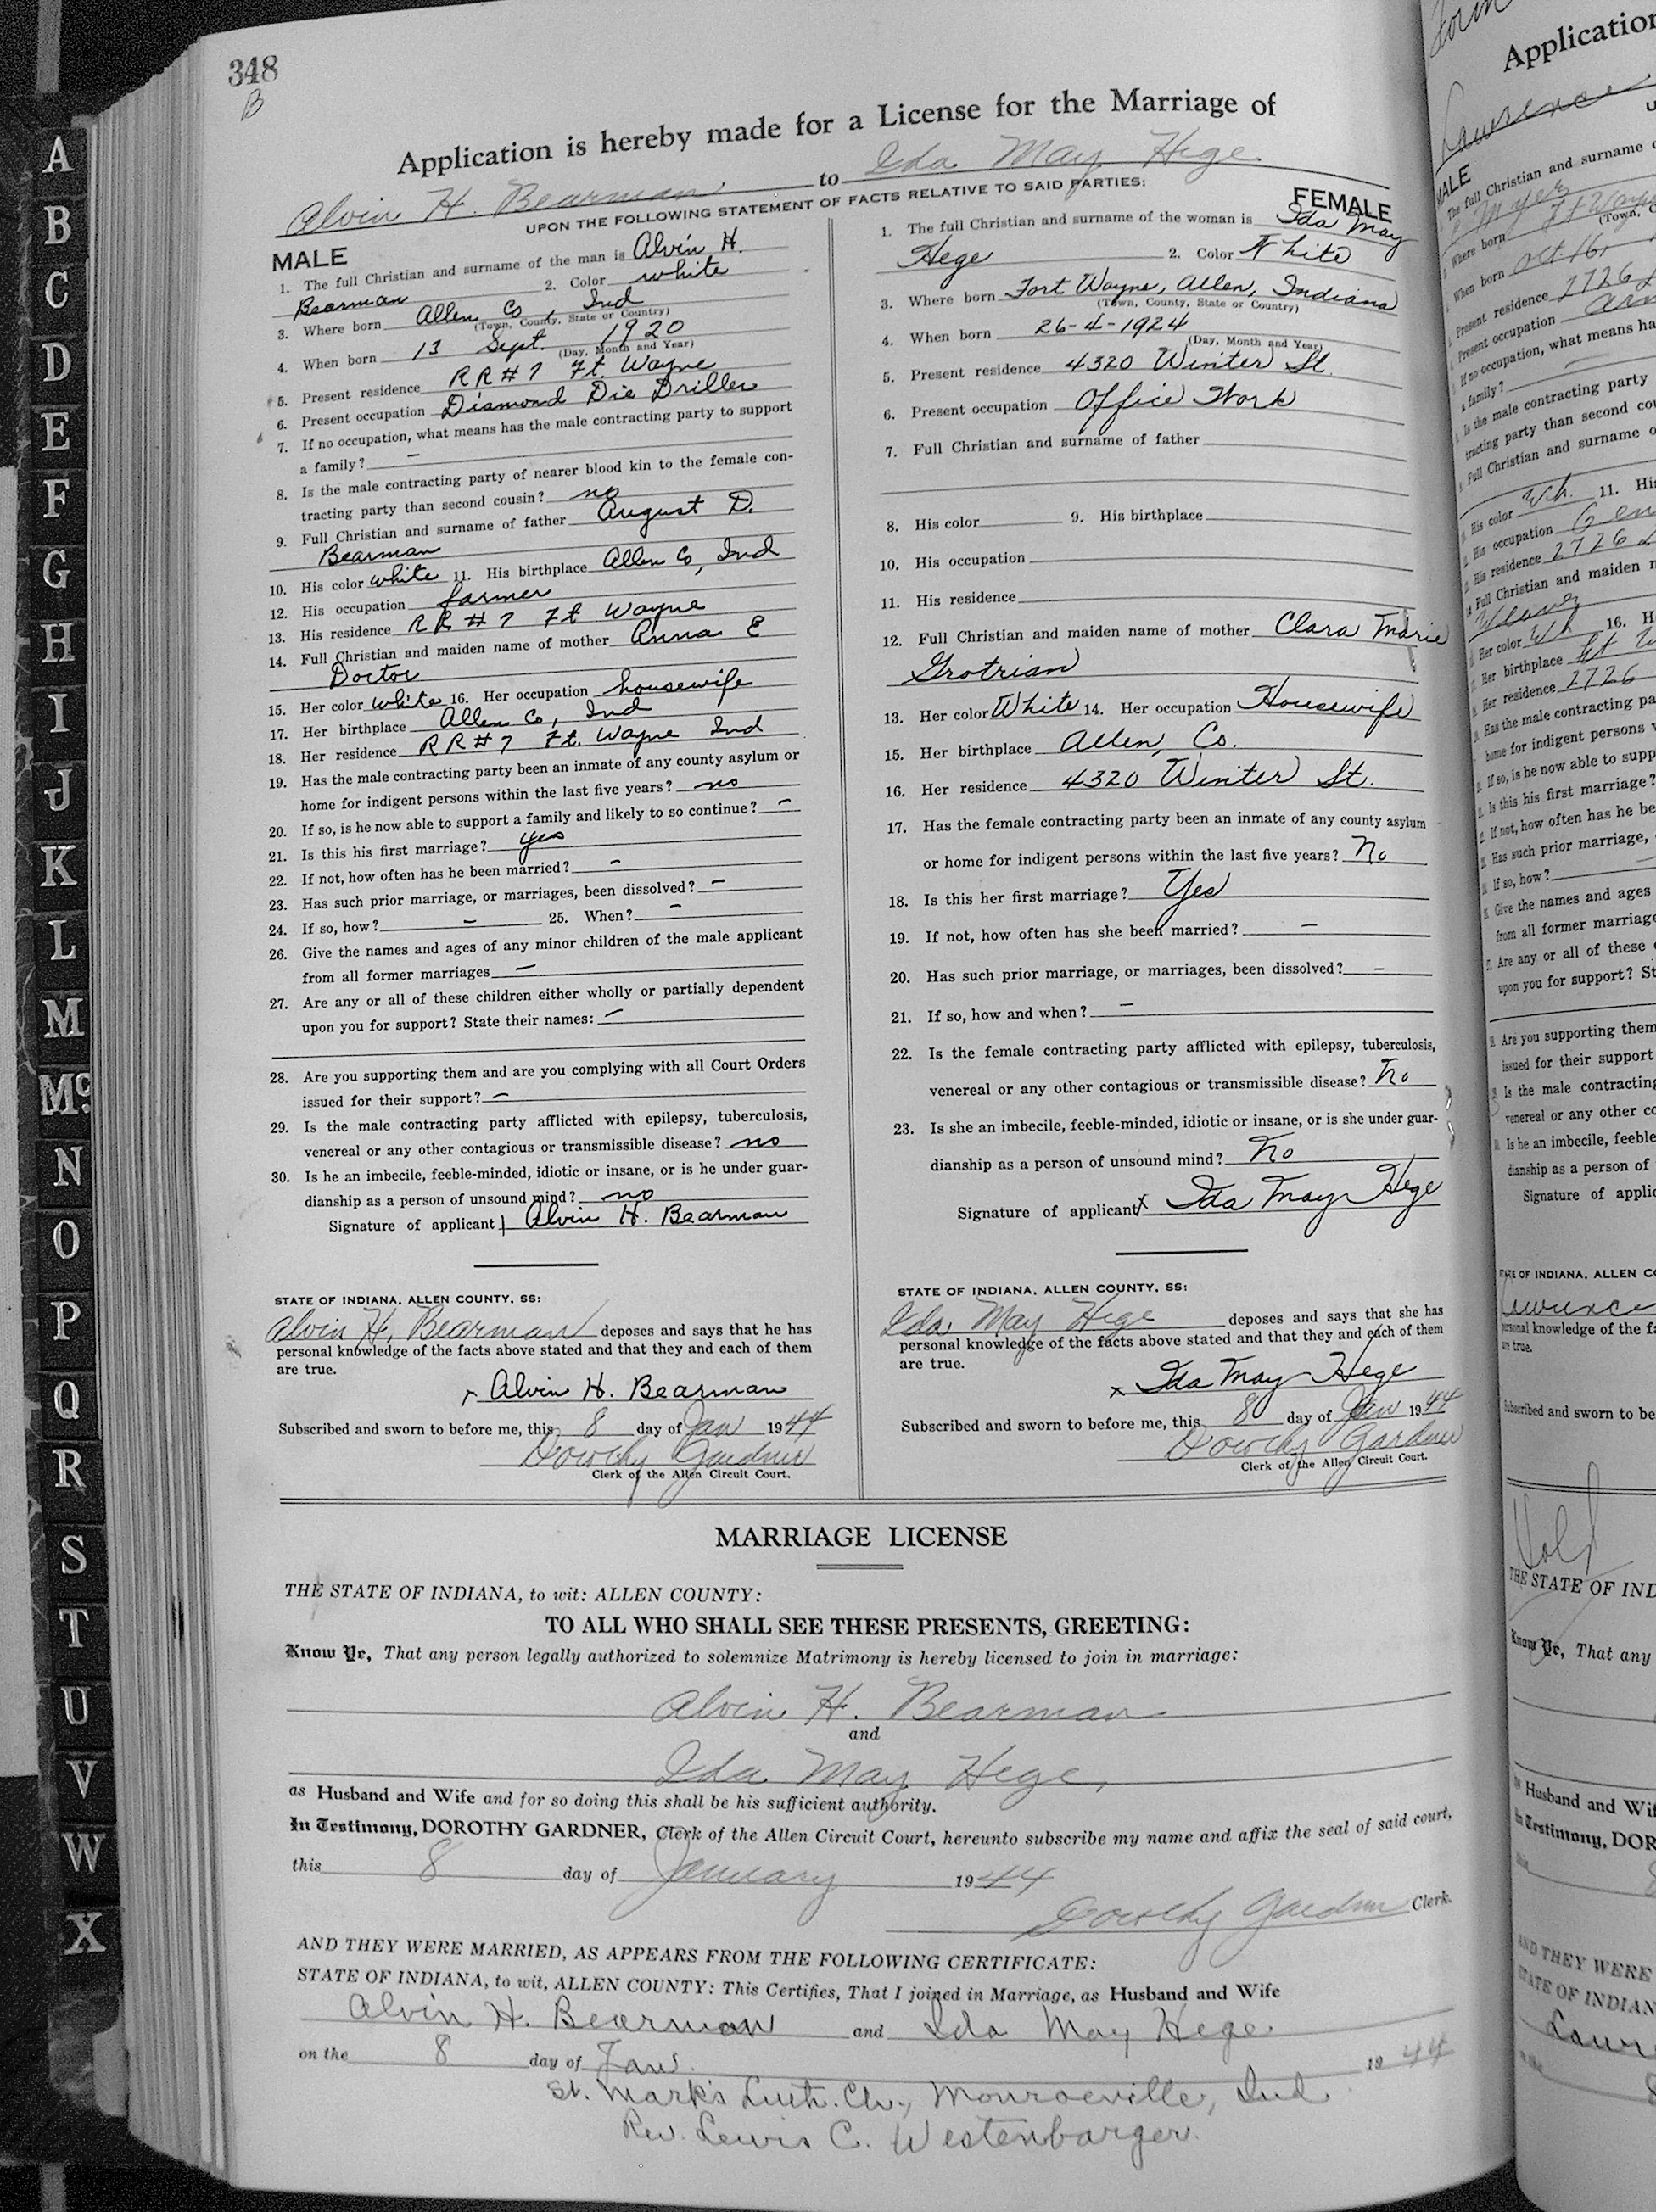 348
B
Application is hereby made for a License for the Marriage of
Alvin H. Bearman, to Ida May Hege
UPON THE FOLLOWING STATEMENT OF FACTS RELATIVE TO SAID PARTIES:
MALE
1. The full Christian and surname of the man is Alvin H.
Bearman 2. Color white
3. Where born Allen Co, Ind
(Town, County, State or Country)
4. When born 13 Sept. 1920
(Day, Month and Year)
5. Present residence RR#7 Ft. Wayne
6. Present occupation Diamond Die Driller
7. If no occupation, what means has the male contracting party to support
a family? -
8. Is the male contracting party of nearer blood kin to the female con-
tracting party than second cousin? no
9. Full Christian and surname of father August D.
Bearman
10. His color white 11. His birthplace Allen Co, Ind
12. His occupation farmer
13. His residence RR#7 Ft Wayne
14. Full Christian and maiden name of mother Anna E
Doctor
15. Her color white 16. Her occupation housewife
17. Her birthplace Allen Co, Ind
18. Her residence RR#7 Ft. Wayne Ind
19. Has the male contracting party been an inmate of any county asylum or
home for indigent persons within the last five years? no
20. If so, is he now able to support a family and likely to so continue? -
21. Is this his first marriage? yes
22. If not, how often has he been married? -
23. Has such prior marriage, or marriages, been dissolved? -
24. If so, how? - 25. When? -
26. Give the names and ages of any minor children of the male applicant
from all former marriages -
27. Are any or all of these children either wholly or partially dependent
upon you for support? State their names: -
28. Are you supporting them and are you complying with all Court Orders
issued for their support? -
29. Is the male contracting party afflicted with epilepsy, tuberculosis,
venereal or any other contagious or transmissible disease? no
30. Is he an imbecile, feeble-minded, idiotic or insane, or is he under guar-
dianship as a person of unsound mind? no
Signature of applicant Alvin H. Bearman
STATE OF INDIANA, ALLEN COUNTY, SS:
Alvin H. Bearman deposes and says that he has
personal knowledge of the facts above stated and that they and each of them
are true.
x Alvin H. Bearman
Subscribed and sworn to before me, this 8 day of Jan 1944
Dorothy Gardner
Clerk of the Allen Circuit Court.
FEMALE
1. The full Christian and surname of the woman is Ida May
Hege 2. Color White
3. Where born Fort Wayne, Allen, Indiana
(Town, County, State or Country)
4. When born 26-4-1924
(Day, Month and Year)
5. Present residence 4320 Winter St.
6. Present occupation Office Work
7. Full Christian and surname of father
8. His color 9. His birthplace
10. His occupation
11. His residence
12. Full Christian and maiden name of mother Clara Marie
Grotrian
13. Her color White 14. Her occupation Housewife
15. Her birthplace Allen, Co.
16. Her residence 4320 Winter St.
17. Has the female contracting party been an inmate of any county asylum
or home for indigent persons within the last five years? No
18. Is this her first marriage? Yes
19. If not, how often has she been married? -
20. Has such prior marriage, or marriages, been dissolved? -
21. If so, how and when? -
22. Is the female contracting party afflicted with epilepsy, tuberculosis,
venereal or any other contagious or transmissible disease? No
23. Is she an imbecile, feeble-minded, idiotic or insane, or is she under guar-
dianship as a person of unsound mind? No
Signature of applicant x Ida May Hege
STATE OF INDIANA, ALLEN COUNTY, SS:
Ida May Hege deposes and says that she has
personal knowledge of the facts above stated and that they and each of them
are true.
x Ida May Hege
Subscribed and sworn to before me, this 8 day of Jan 1944
Dorothy Gardner
Clerk of the Allen Circuit Court.
MARRIAGE LICENSE
THE STATE OF INDIANA, to wit: ALLEN COUNTY:
TO ALL WHO SHALL SEE THESE PRESENTS, GREETING:
Know Ye, That any person legally authorized to solemnize Matrimony is hereby licensed to join in marriage:
Alvin H. Bearman
and
Ida May Hege,
as Husband and Wife and for so doing this shall be his sufficient authority.
In Testimony, DOROTHY GARDNER, Clerk of the Allen Circuit Court, hereunto subscribe my name and affix the seal of said court,
this 8 day of January 1944
Dorothy Gardner Clerk.
AND THEY WERE MARRIED, AS APPEARS FROM THE FOLLOWING CERTIFICATE:
STATE OF INDIANA, to wit, ALLEN COUNTY: This Certifies, That I joined in Marriage, as Husband and Wife
Alvin H. Bearman and Ida May Hege
on the 8 day of Jan. 1944
St. Mark's Luth. Ch., Monroeville, Ind.
Rev. Lewis C. Westenbarger.
A
B
C
D
E
F
G
H
I
J
K
L
M
Mc
N
O
P
Q
R
S
T
U
V
W
X